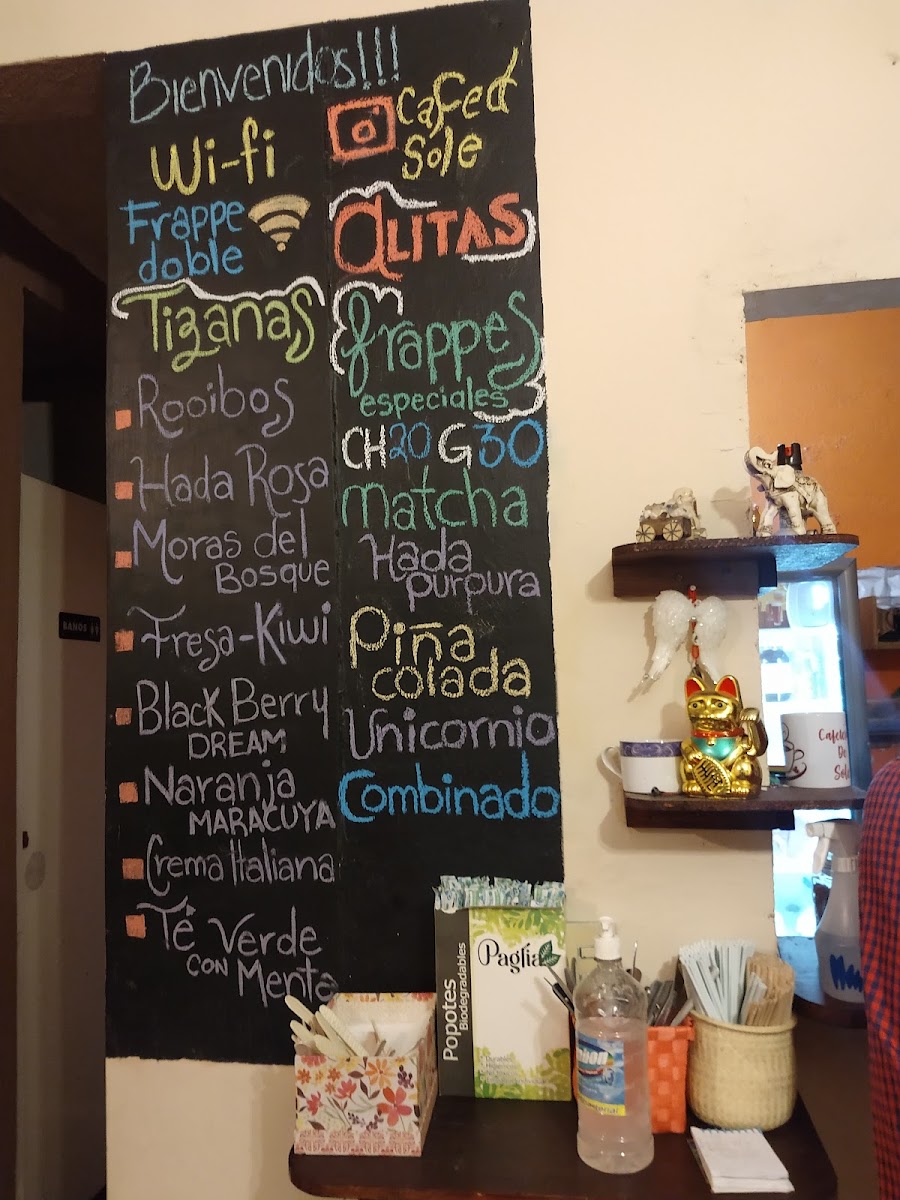 Bienvenidos!!!
Wi-fi
Frappe
doble
Tizanas
Rooibos
Hada Rosa
Moras del
Bosque
Fresa-Kiwi
Black Berry
DREAM
Naranja
MARACUYA
Crema Italiana
Té Verde
CON Menta
Cafed
Sole
ALITAS
frappes
especiales
CH20 G30
Matcha
Hada
purpura
Piña
colada
Unicornio
Combinado
BAÑOS
Popotes
Biodegradables
Paglia